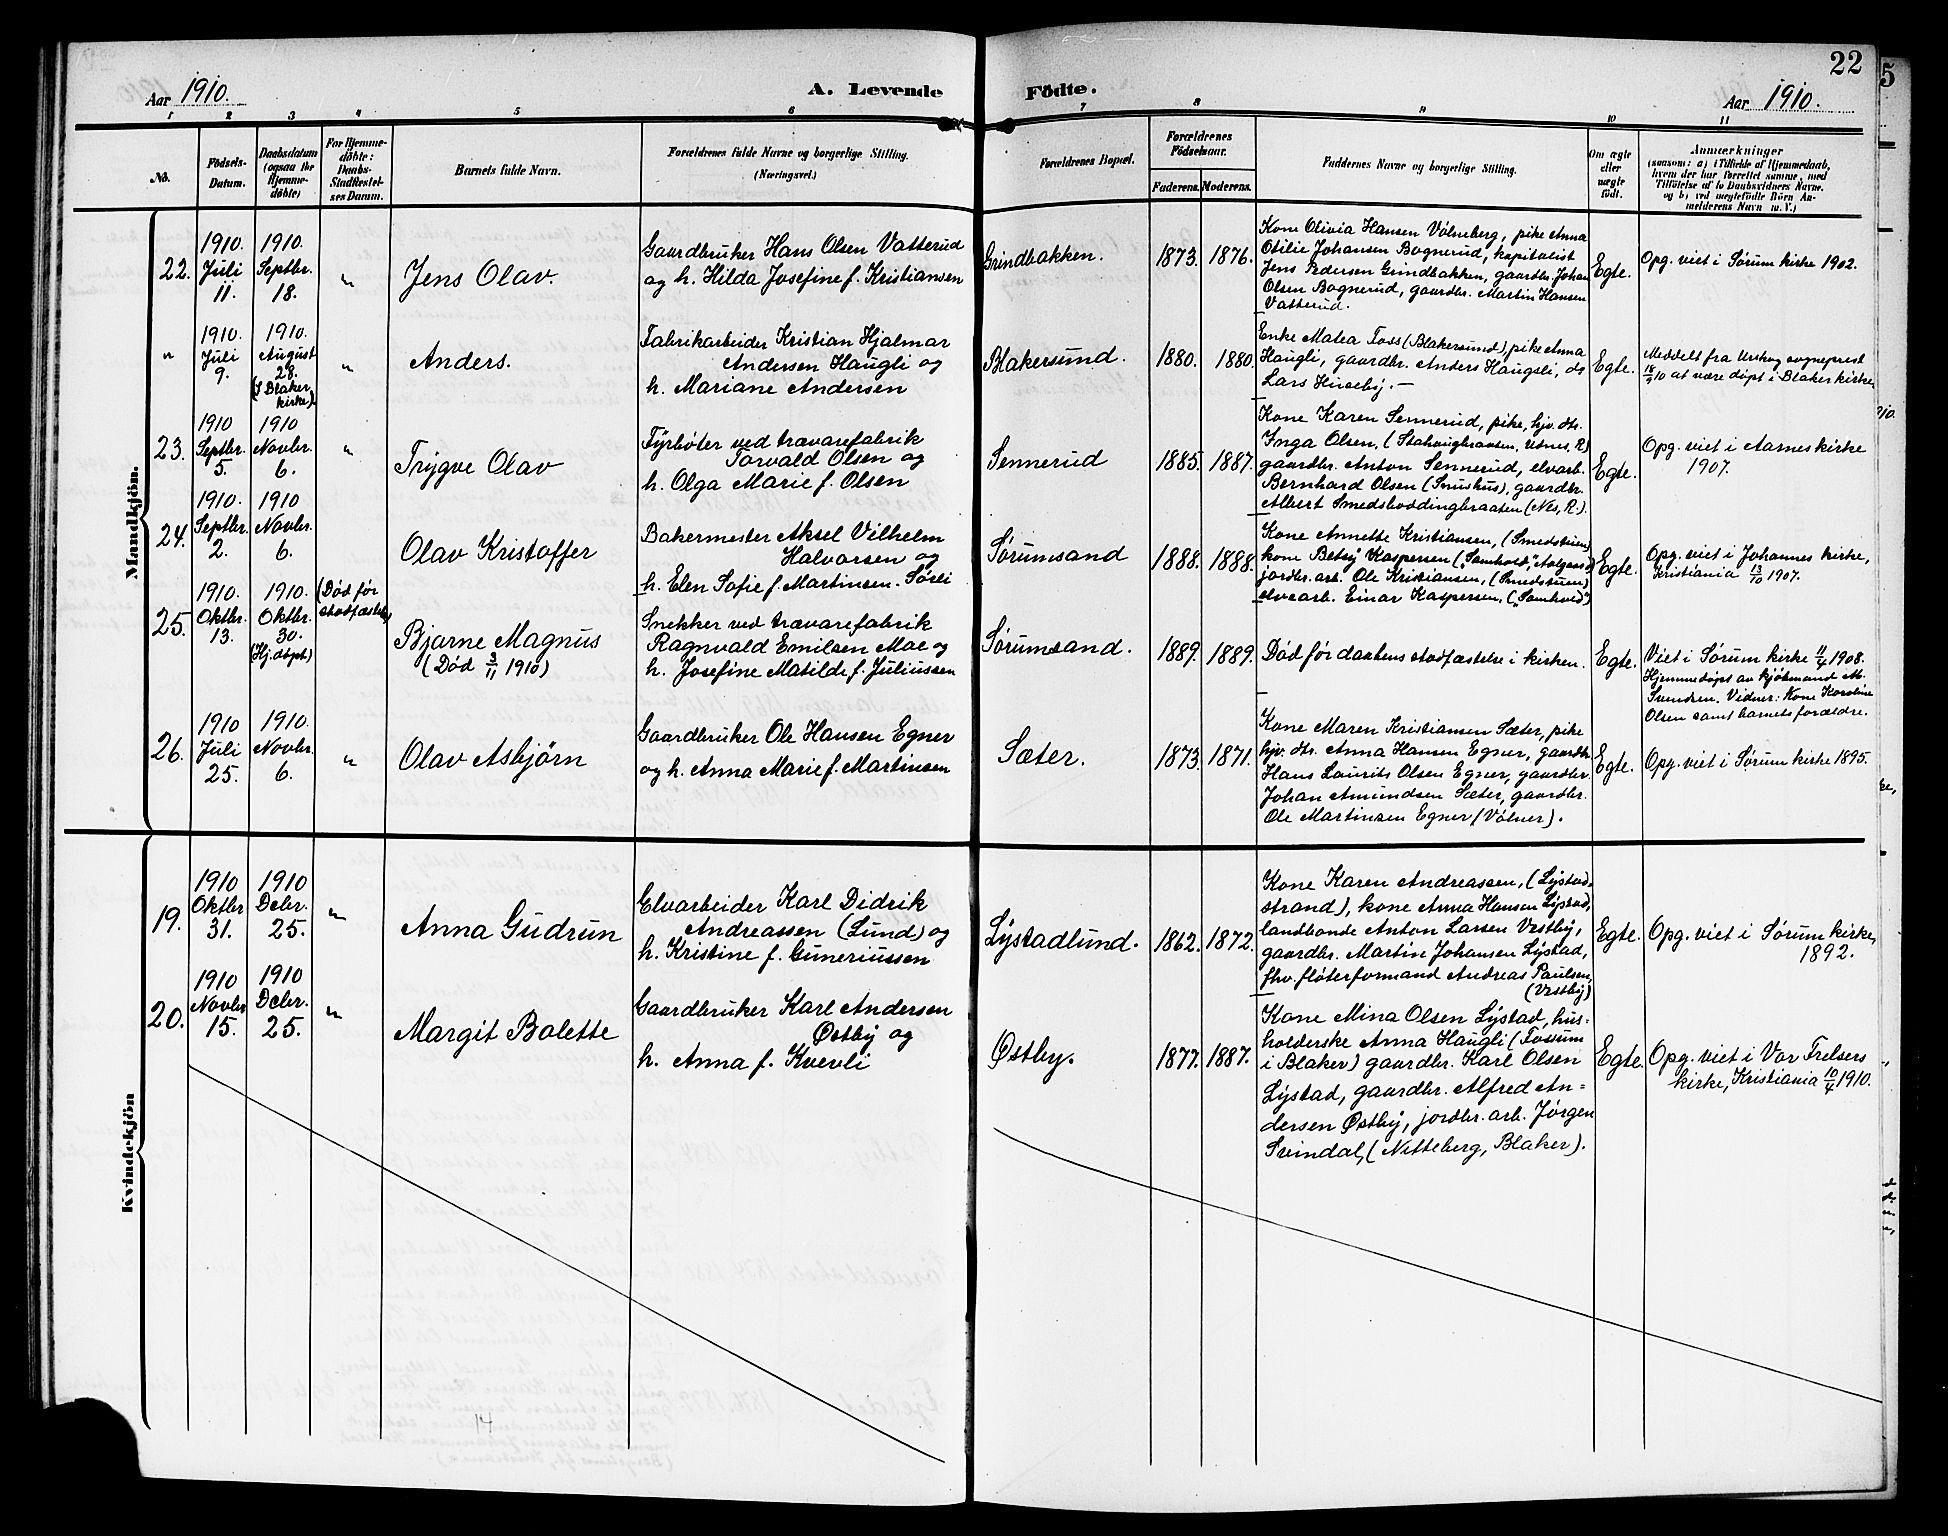 22
Aar 1910.
A. Levende Födte.
Aar 1910.
1 2 3 4 5 6 7 8 9 10 11
No.
Födsels-
Datum.
Daabsdatum
(ogsaa for
Hjemme-
döbte)
For Hjemme-
döbte:
Daabs-
Stadfæstel-
ses Datum.
Barnets fulde Navn.
Forældrenes fulde Navne og borgerlige Stilling.
(Næringsvei.)
Forældrenes Bopæl.
Forældrenes
Födselsaar.
Faderens. Moderens.
Faddernes Navne og borgerlige Stilling.
Om ægte
eller
uægte
födt.
Anmærkninger
(saasom: a) i Tilfælde af Hjemmedaab,
hvem der har forrettet samme, med
Tilföielse af to Daabsvidners Navne.
og b) ved uægtefödte Börn An-
melderens Navn m. V.)
Mandkjön.
22.
1910.
Juli
11.
1910.
Septbr.
18.
"
Jens Olav.
Gaardbruker Hans Olsen Vatterud
og h. Hilda Josefine f. Kristiansen
Grindbakken.
1873. 1876.
Kone Olivia Hansen Vølneberg, pike Anna
Otilie Johansen Bognerud, kapitalist
Jens Pedersen Grindbakken, gaardbr. Johan
Olsen Bognerud, gaardbr. Martin Hansen
Vatterud.
Egte.
Opg. viet i Sørum kirke 1902.
"
1910.
Juli
9.
1910.
August
28.
(I Blaker
kirke).
"
Anders.
Fabrikarbeider Kristian Hjalmar
Andersen Haugli og
h. Mariane Andersen
Blakersund.
1880. 1880.
Enke Malea Foss (Blakersund), pike Anna
Haugli, gaardbr. Anders Haugsli, do
Lars Huseby.-
Egte.
Meddelt fra Urskog sogneprest
18/9 10 at være døpt i Blaker kirke.
23.
1910
Septbr.
5.
1910
Novbr.
6.
"
Trygve Olav
Fyrbøter ved trævarefabrik
Torvald Olsen og
h. Olga Marie f. Olsen
Sennerud
1885. 1887.
Kone Karen Sennerud, pike, hjv. dtr.
Inga Olsen, ( R)
gaardbr. Anton Sennerud, elvarb.
Bernhard Olsen (Snushus), gaardbr.
Albert Smedsboddingbraaten (Nes, R.).
Egte.
Opg. viet i Aarnes kirke
1907.
24.
1910.
Septbr.
2.
1910
Novbr.
6.
Olav Kristoffer
Bakermester Aksel Vilhelm
Halvorsen og
h. Elen Sofie f. Martinsen-Sørli
Sørumsand
1888. 1888.
Kone Annette Kristiansen, (Smedstuen)
kone Betsy Kaspersen ("Samhold",
jordbr. arb. Ole Kristiansen, (Smedstuen)
elvearb. Einar Kaspersen, ("Samhold")
Egte.
Opg. viet i Johannes kirke,
Kristiania 13/10 1907.
25.
1910.
Oktbr.
13.
1910.
Oktbr.
30.
(Hj.døpt)
(Død før
stadfæstelse)
Bjarne Magnus
(Død 3/11 1910)
Snekker ved trævarefabrik
Ragnvald Emilsen Moe og
h. Josefine Matilde f. Juliussen
Sørumsand.
1889. 1889.
Død før daabens stadfæstelse i kirken.
Egte.
Viet i Sørum kirke 11/4 1908.
Hjemmedøpt av kjøbmand M.
Svendsen. Vidner: Kone Karoline
Olsen samt barnets forældre.
26.
1910
Juli
25.
1910.
Novbr.
6.
"
Olav Asbjørn
Gaardbruker Ole Hansen Egner
og h. Anna Marie f. Martinsen
Sæter.
1873. 1871.
Kone Maren Kristiansen Sæter, pike
hjv. dtr. Anna Hansen Egner, gaardbr.
Hans Laurits Olsen Egner, gaardbr.
Johan Amundsen Sæter, gaardbr.
Ole Martinsen Egner (Vølner).
Egte.
Opg. viet i Sørum kirke 1895.
Kvindekjön
19.
1910
Oktbr
31.
1910
Decbr.
25.
"
Anna Gudrun
Elvarbeider Karl Didrik
Andreassen (Lund) og
h. Kristine f. Guneriussen
Lystadlund.
1862. 1872.
Kone Karen Andreassen, (Lystad-
strand), kone Anna Hansen Lystad,
landbonde Anton Larsen Vestby,
gaardbr. Martin Johansen Lystad,
fhv. fløterformand Andreas Paulsen,
(Vestby)
Egte.
Opg. viet i Sørum kirke,
1892.
20.
1910
Novbr
15.
1910
Decbr.
25.
"
Margit Bolette
Gaardbruker Karl Andersen
Østby og
h. Anna f. Kverli
Østby.
1877. 1887.
Kone Mina Olsen Lystad, hus-
holderske Anna Haugli (Fossum
i Blaker) gaardbr. Karl Olsen
Lystad, gaardbr. Alfred An=
dersen Østby, jordbr. arb. Jørgen
Svindal, (Nitteberg, Blaker).
Egte.
Opg. viet i Vor Frelsers
kirke, Kristiania 10/4 1910.
14